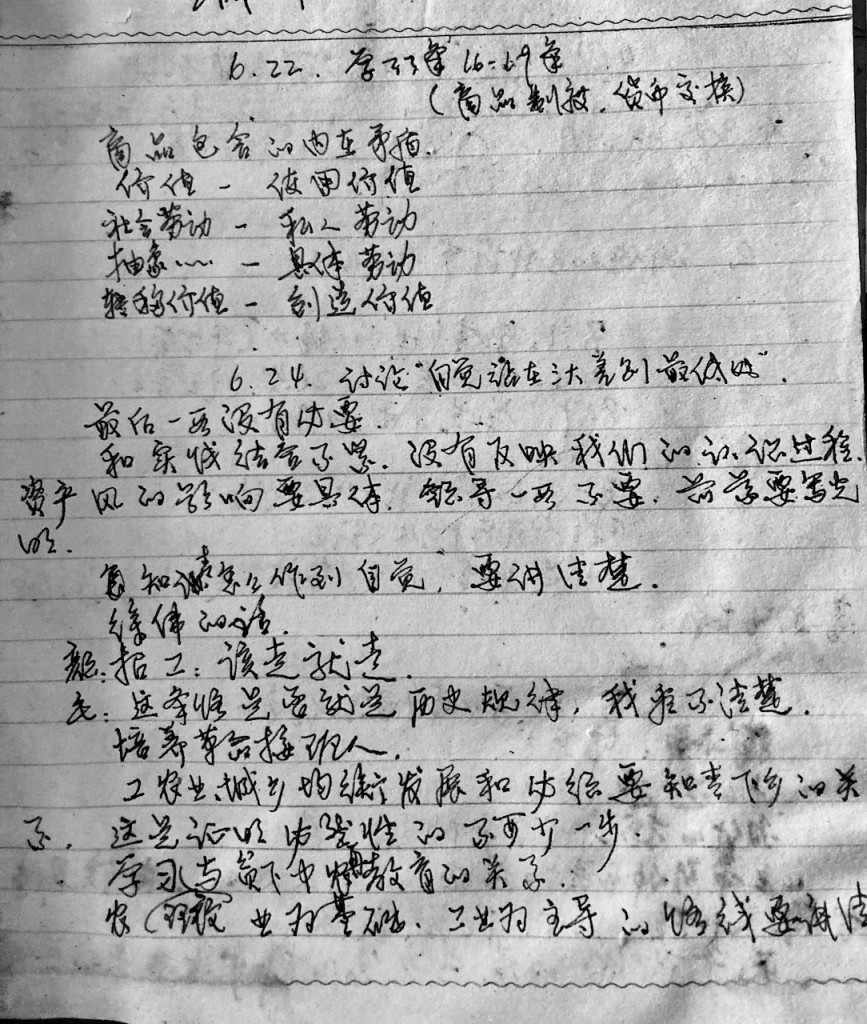 6.22. 学习33条 16-19条
(商品制度，货币交换)
商品包含的内在矛盾.
价值 - 使用价值
社会劳动 - 私人劳动
抽象…… - 具体劳动
转移价值 - 创造价值
6.24. 讨论“自觉站在三大差别最低处”.
最后一段没有必要.
和实践结合不紧. 没有反映我们的认识过程.
资产风的影响要具体. 领导一段不要. 前首要写光
明.
知识青年怎么作到自觉, 要讲清楚.
徐伟的话.
招工: 该走就走.
这条路是否就是历史规律, 我看不清楚.
培养革命接班人.
工农业、城乡均衡发展和必须要知青下乡的关
系. 这是证明必然性的不可少一步.
学习与贫下中农再教育的关系.
农业为基础. 工业为主导的路线要讲清